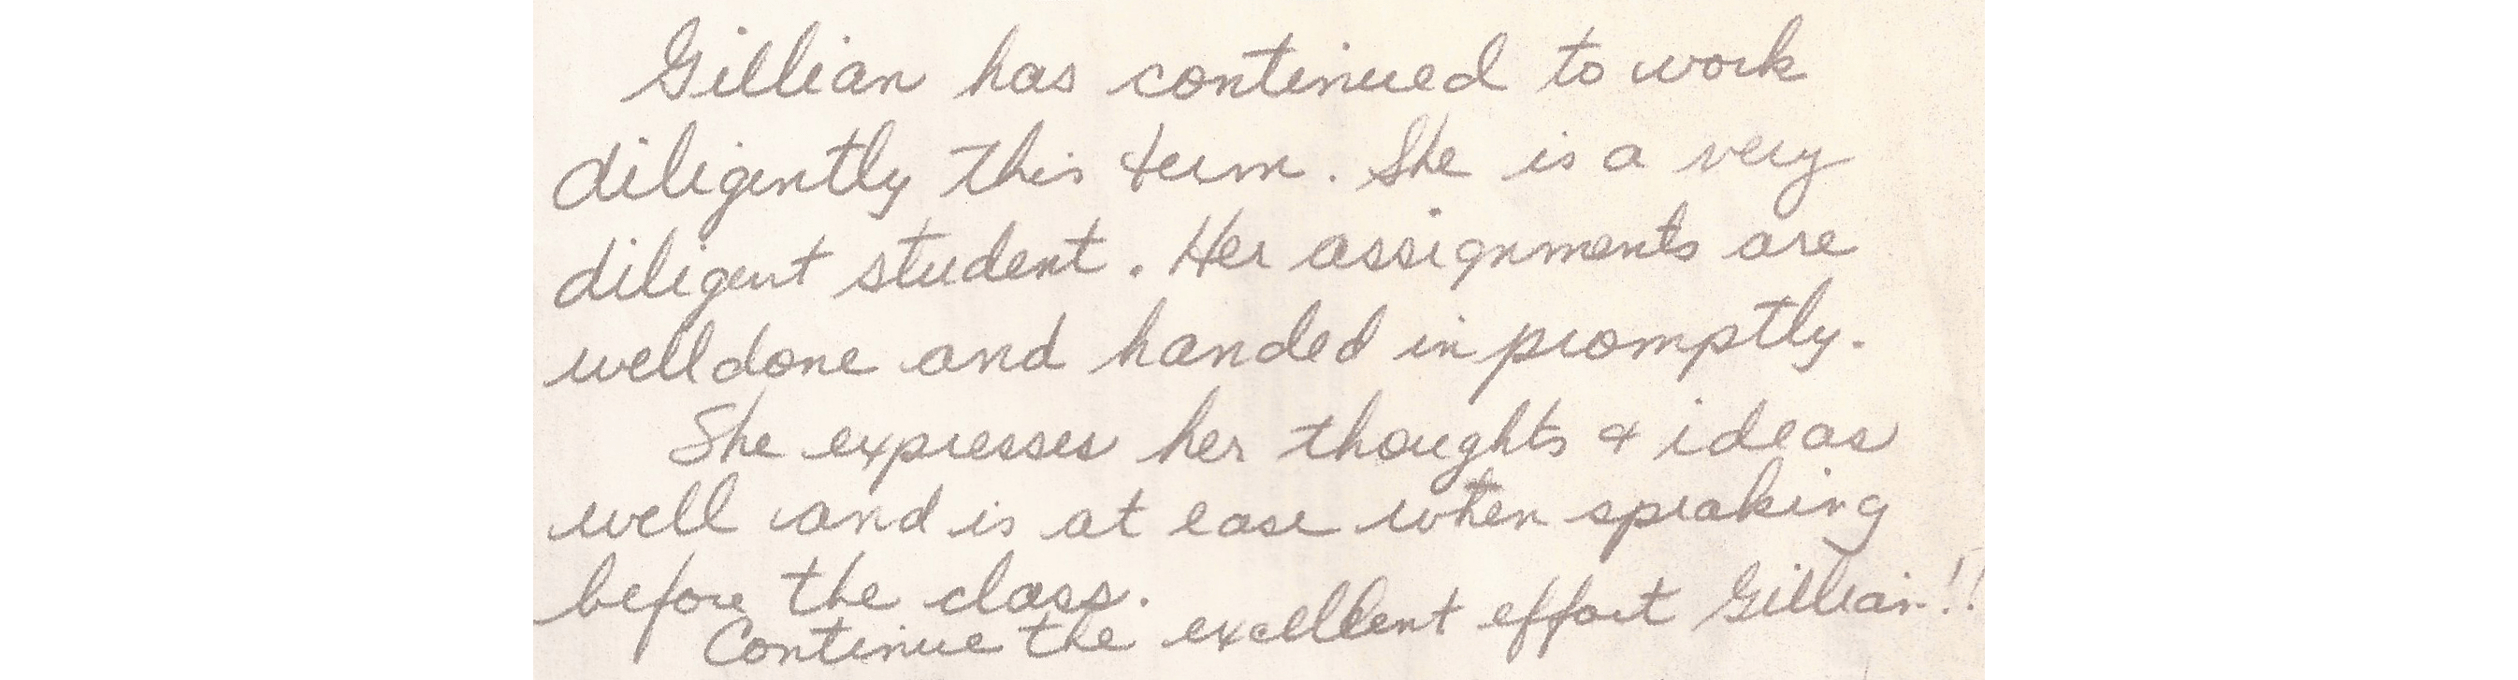 Gillian has continued to work
diligently this term. She is a very
diligent student. Her assignments are
well done and handed in promptly.
She expresses her thoughts & ideas
well and is at ease when speaking
before the class.
Continue the excellent effort Gillian!!